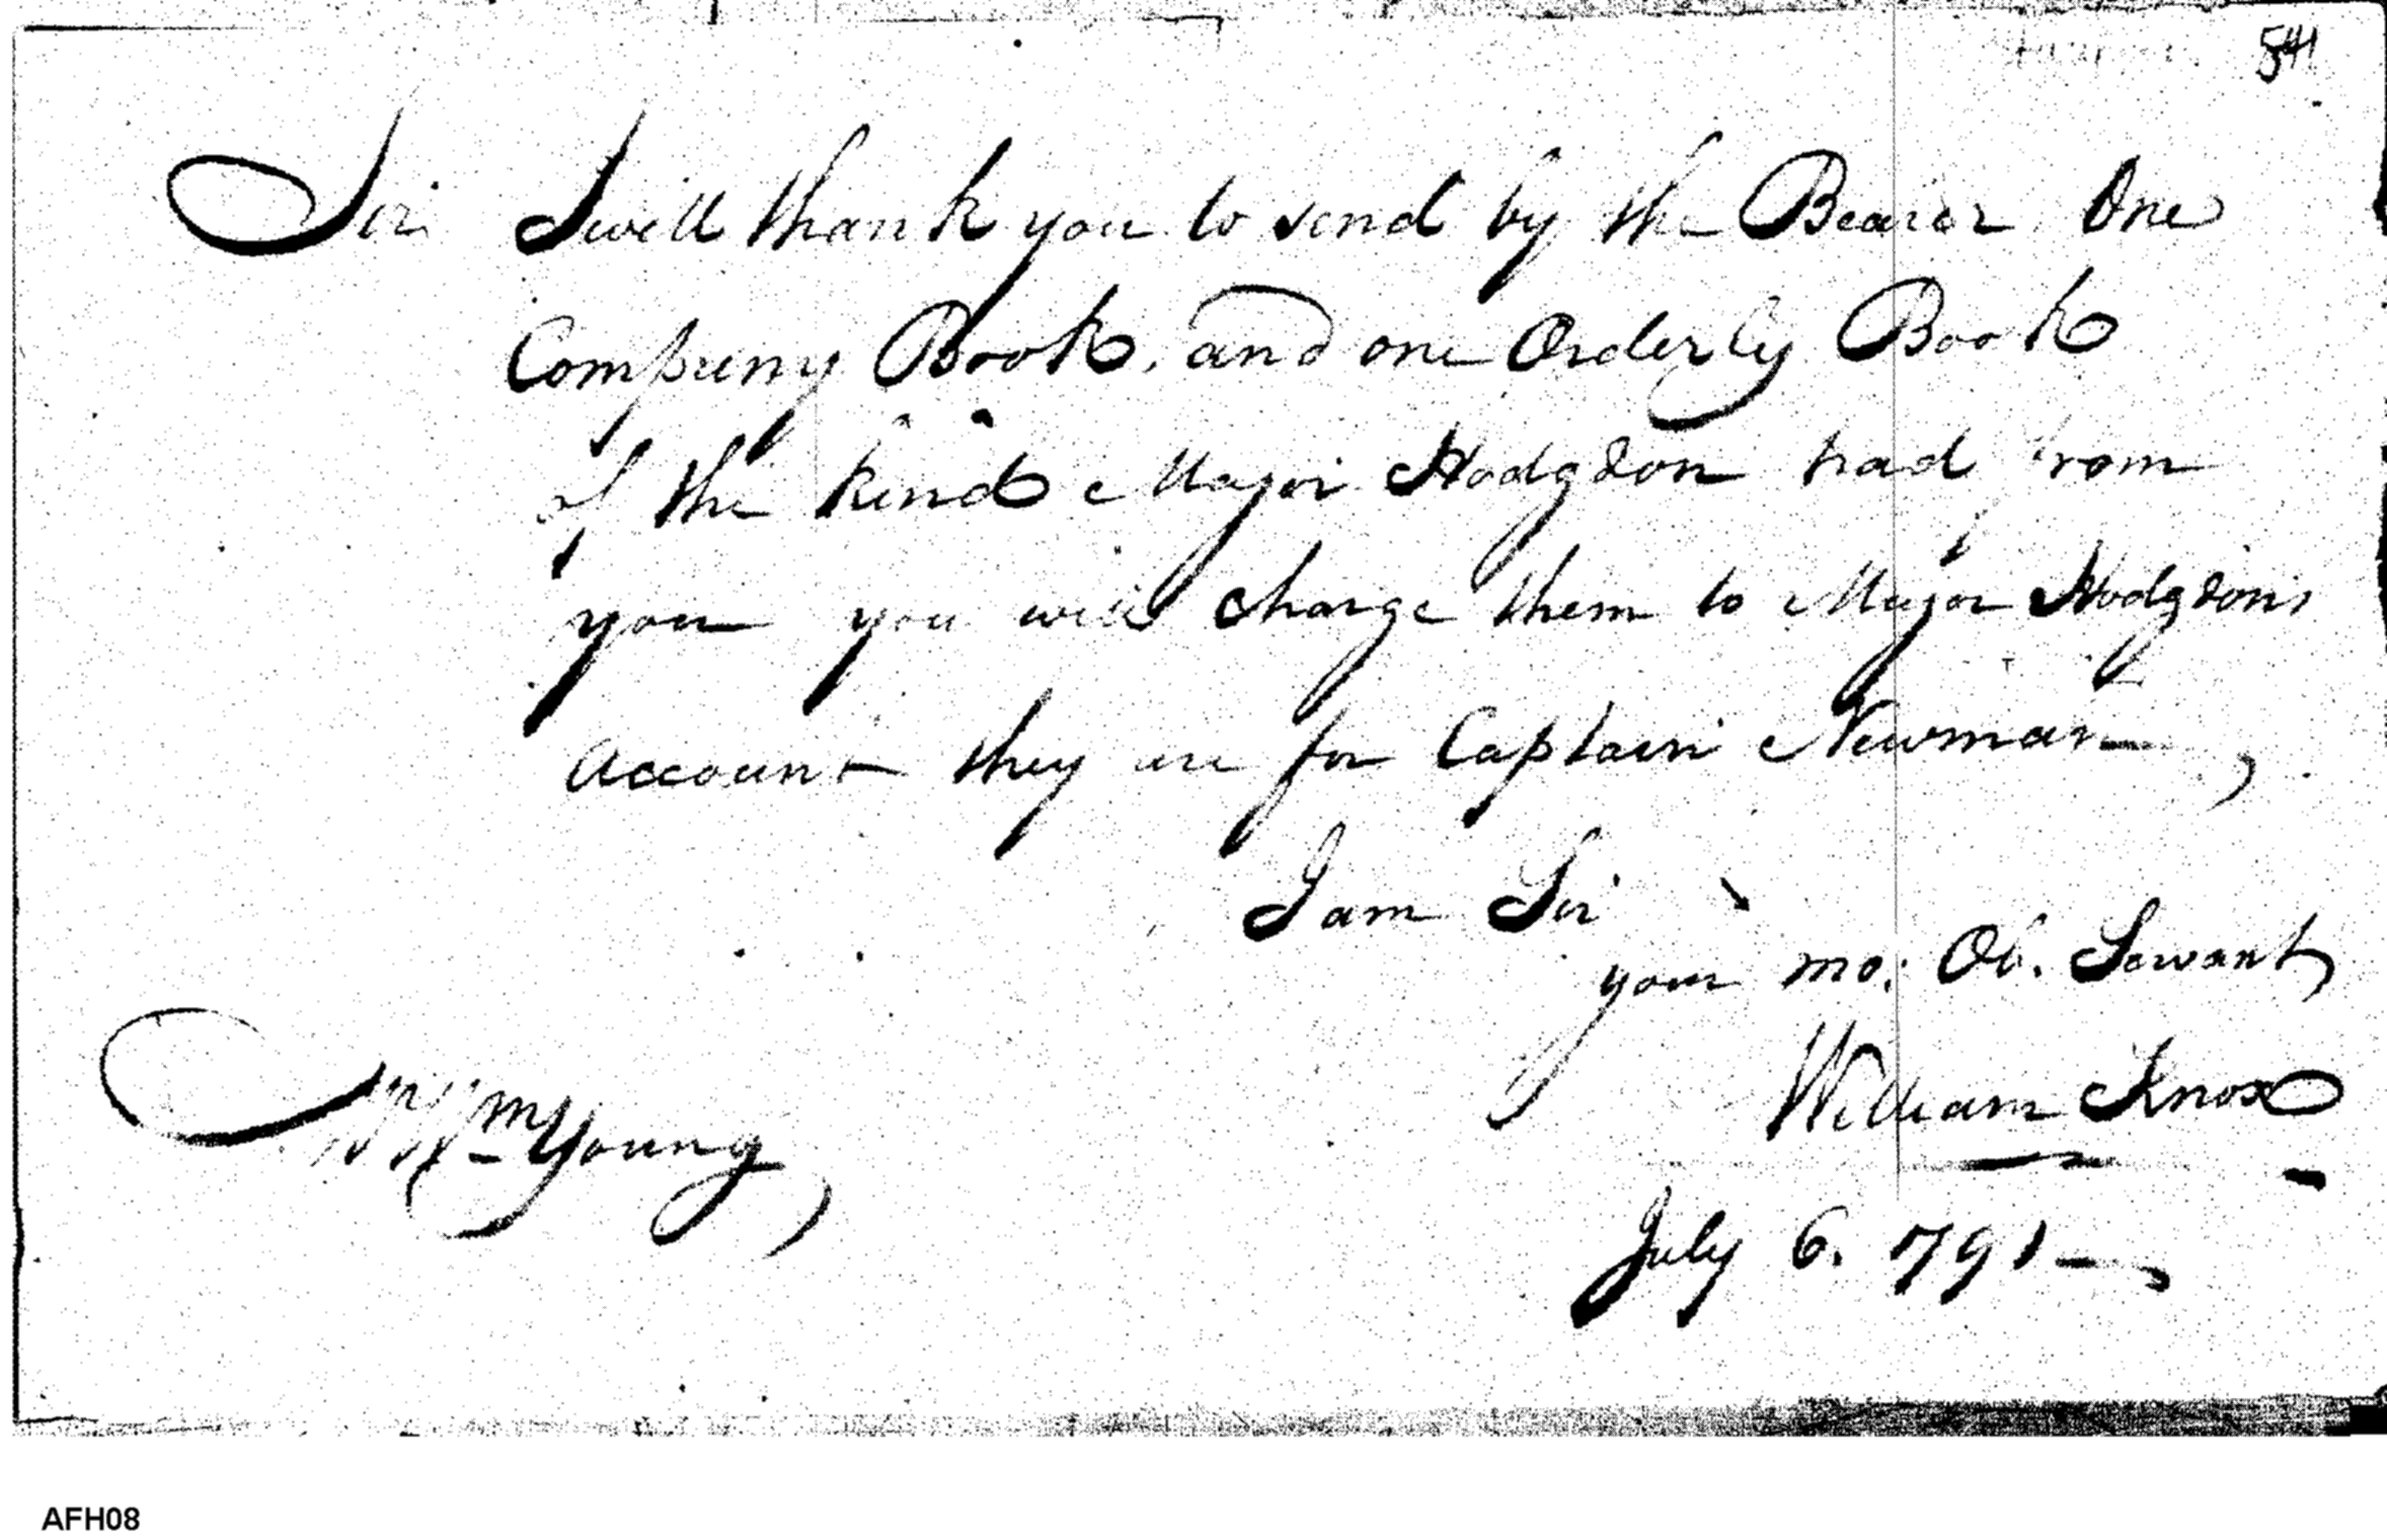 541
Sir I will thank you to send by the Bearer One
Company Book, and one Orderly Book
of the kind Major Hodgdon had from
you you will charge them to Major Hodgdons
account they are for Captain Newman,
I am Sir
your mo: Ob. Servant,
William Knox
Mr Wm Young
July 6. 1791
AFH08